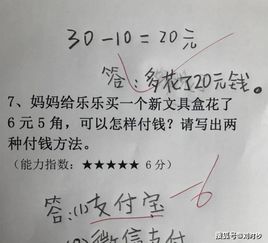 30-10=20元
答:多花了20元钱。
7、妈妈给乐乐买一个新文具盒花了
6元5角，可以怎样付钱？请写出两
种付钱方法。
(能力指数：★★★★★ 6分)
答:(1)支付宝
-6
(2)微信支付
搜狐号@刘时秒